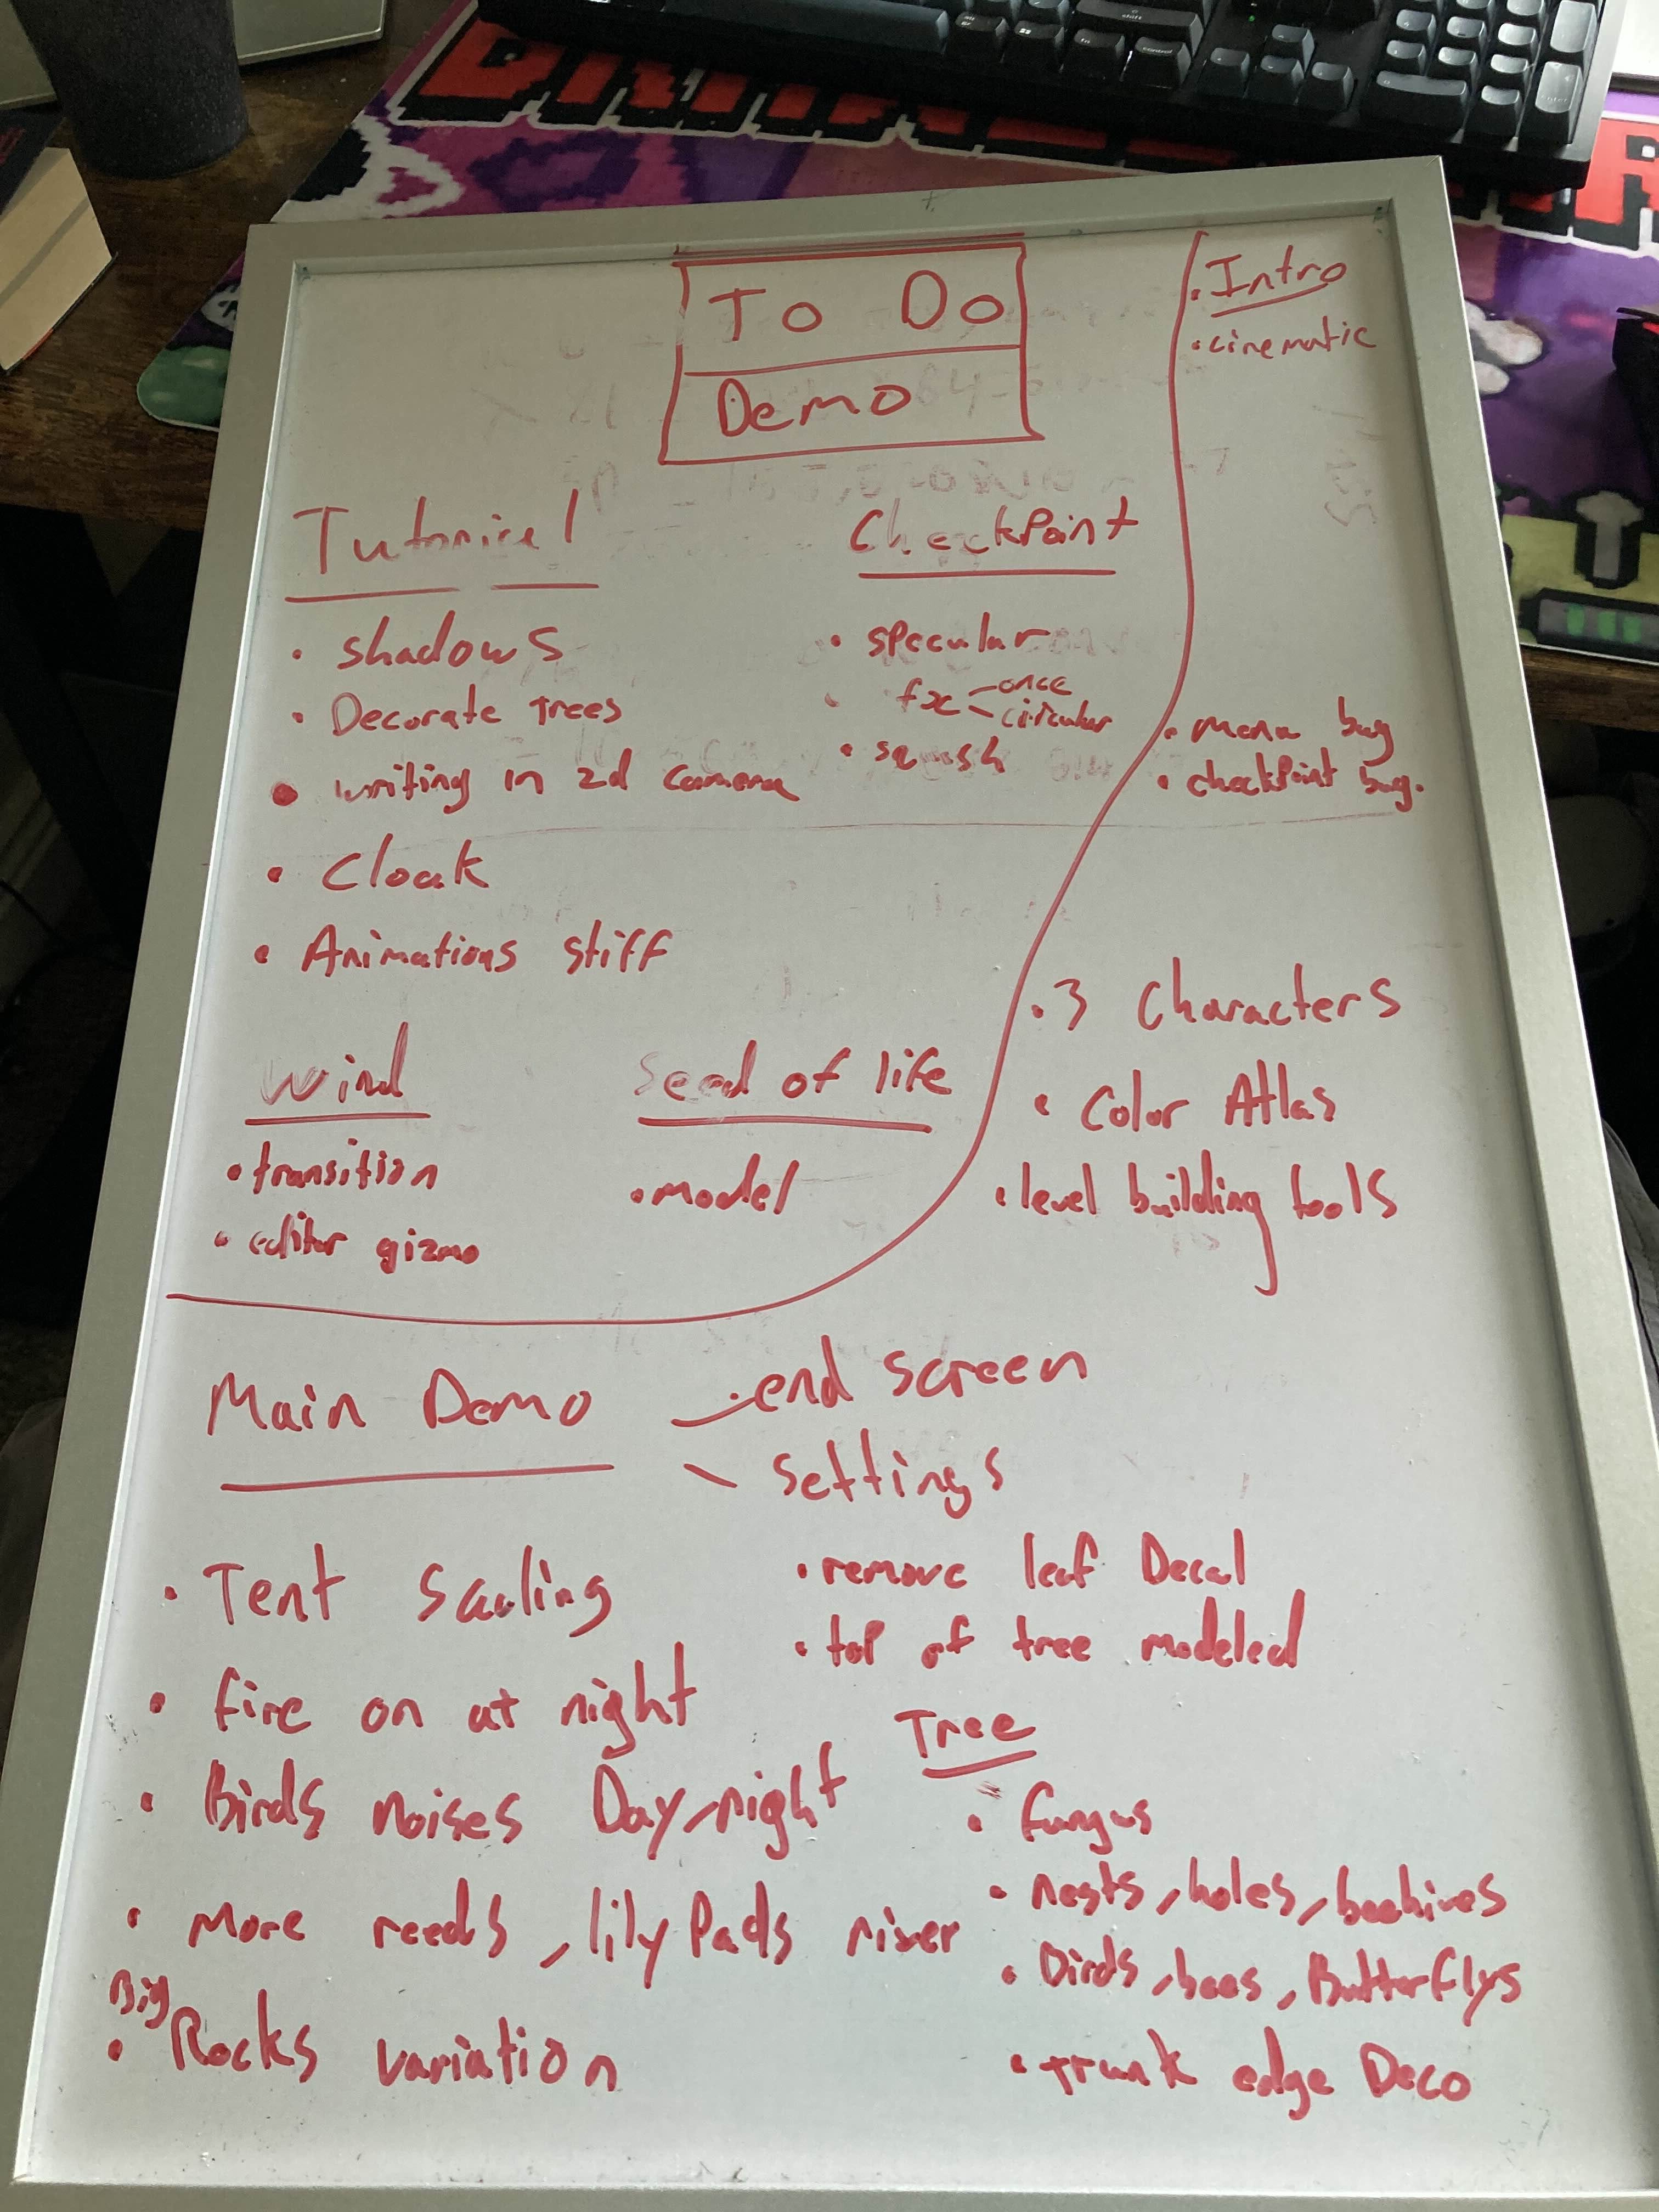 To Do
Demo
Tutorial
• shadows
• Decorate Trees
• writing in 2d camera
• Cloak
• Animations stiff
CheckPoint
• specular
• fx - once
- circular
• squash
• Intro
• cinematic
• menu bug
• checkPoint bug.
Wind
• transition
• editor gizmo
Seed of life
• model
• 3 Characters
• Color Atlas
• level building tools
Main Demo
• end screen
settings
• Tent Scaling
• fire on at night
• Birds noises Day, night
• More reeds, lily Pads river
Big
• Rocks variation
• remove leaf Decal
• top of tree modeled
Tree
• fungus
• nests, holes, beehives
• Birds, bees, Butterflys
• trunk edge Deco